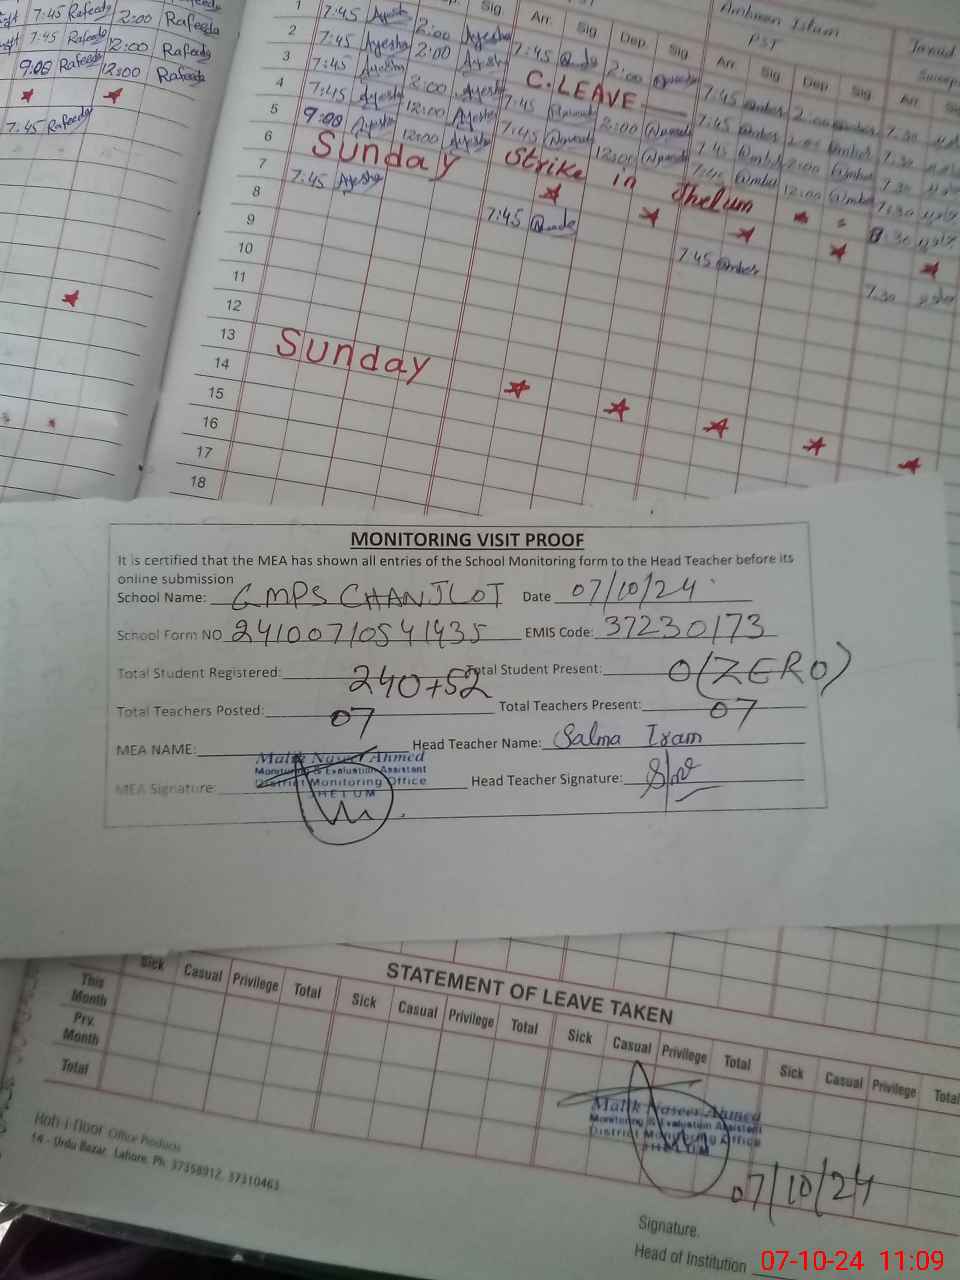 7:45 Rafeeda 2:00 Rafeeda
7:45 Rafeeda 12:00 Rafeeda
9:00 Rafeeda 12:00 Rafeeda
7:45 Rafeeda
PST
Arr. Sig Dep. Sig Arr. Sig Dep Sig Arr
1 7:45 Ayesha 2:00 Ayesha 7:45 2:00 7:45
2 7:45 Ayesha 2:00 Ayesha C.LEAVE 7:45 7:30
3 7:45 Ayesha 2:00 Ayesha 7:45 2:00 7:45 2:00 7:30
4 7:45 Ayesha 12:00 Ayesha 7:45 12:00 7:45 12:00 7:30
5 9:00 Ayesha 12:00 Ayesha
6 Sunday Strike in Jhelum
7 7:45 Ayesha 7:45 7:45 7:30
8
9
10
11
12
13 Sunday
14
15
16
17
18
MONITORING VISIT PROOF
It is certified that the MEA has shown all entries of the School Monitoring form to the Head Teacher before its
online submission
School Name: GMPS CHANJLOT Date 07/10/24
School Form NO 24100710541435 EMIS Code: 37230173
Total Student Registered: 240+52 Total Student Present: 0(ZERO)
Total Teachers Posted: 07 Total Teachers Present: 07
MEA NAME: Head Teacher Name: Salma Iram
Malik Naseer Ahmed
Monitoring & Evaluation Assistant
District Monitoring Office
JHELUM
MEA Signature: Head Teacher Signature:
STATEMENT OF LEAVE TAKEN
Sick Casual Privilege Total Sick Casual Privilege Total Sick Casual Privilege Total Sick Casual Privilege Total
This Month
Prv. Month
Total
Malik Naseer Ahmed
Monitoring & Evaluation Assistant
District Monitoring Office
JHELUM
07/10/24
Office Products
14 - Urdu Bazar, Lahore. Ph: 37358912, 37310463
Signature.
Head of Institution
07-10-24 11:09